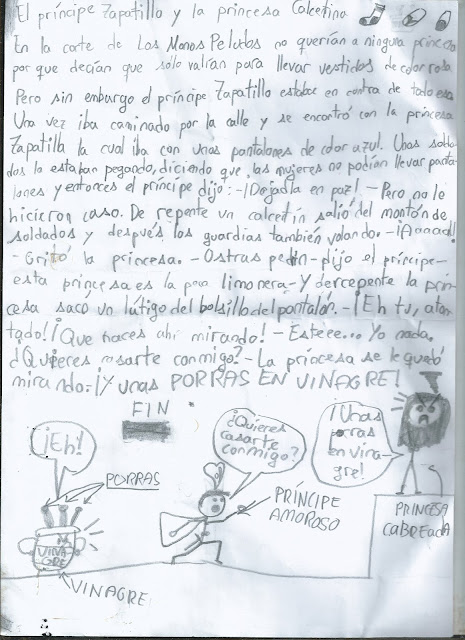 El príncipe Zapatillo y la princesa Calcetina
En la corte de Los Monos Peludos no querían a ninguna princesa
por que decían que solo valían para llevar vestidos de color rosa.
Pero sin embargo el príncipe Zapatillo estaba en contra de todo eso
Una vez iba caminado por la calle y se encontró con la princesa
Zapatilla la cual iba con unas pantalones de color azul. Unos solda-
dos la estaban pegando, diciendo que las mujeres no podían llevar panta-
lones y entonces el príncipe dijo: -¡Dejadla en paz! -Pero no le
hicieron caso. De repente un calcetín salió del montón de
soldados y después los guardias también volando. -¡Aaaaad!
-Gritó la princesa. -Ostras pedrín- dijo el príncipe-
esta princesa es la pera limonera.-Y derrepente la prin-
cesa sacó un látigo del bolsillo del pantalón. -¡Eh tu, aton-
tado! ¡Que haces ahí mirando! -Esteee... Yo nada.
¿Quieres casarte conmigo?-La princesa se le quedó
mirando.-¡Y unas PORRAS EN VINAGRE!
FIN
¡Eh!
PORRAS
VINAGRE
VINAGRE
¿Quieres
casarte
conmigo?
PRÍNCIPE
AMOROSO
¡Unas
porras
en vina-
gre!
PRINCESA
CABREADA